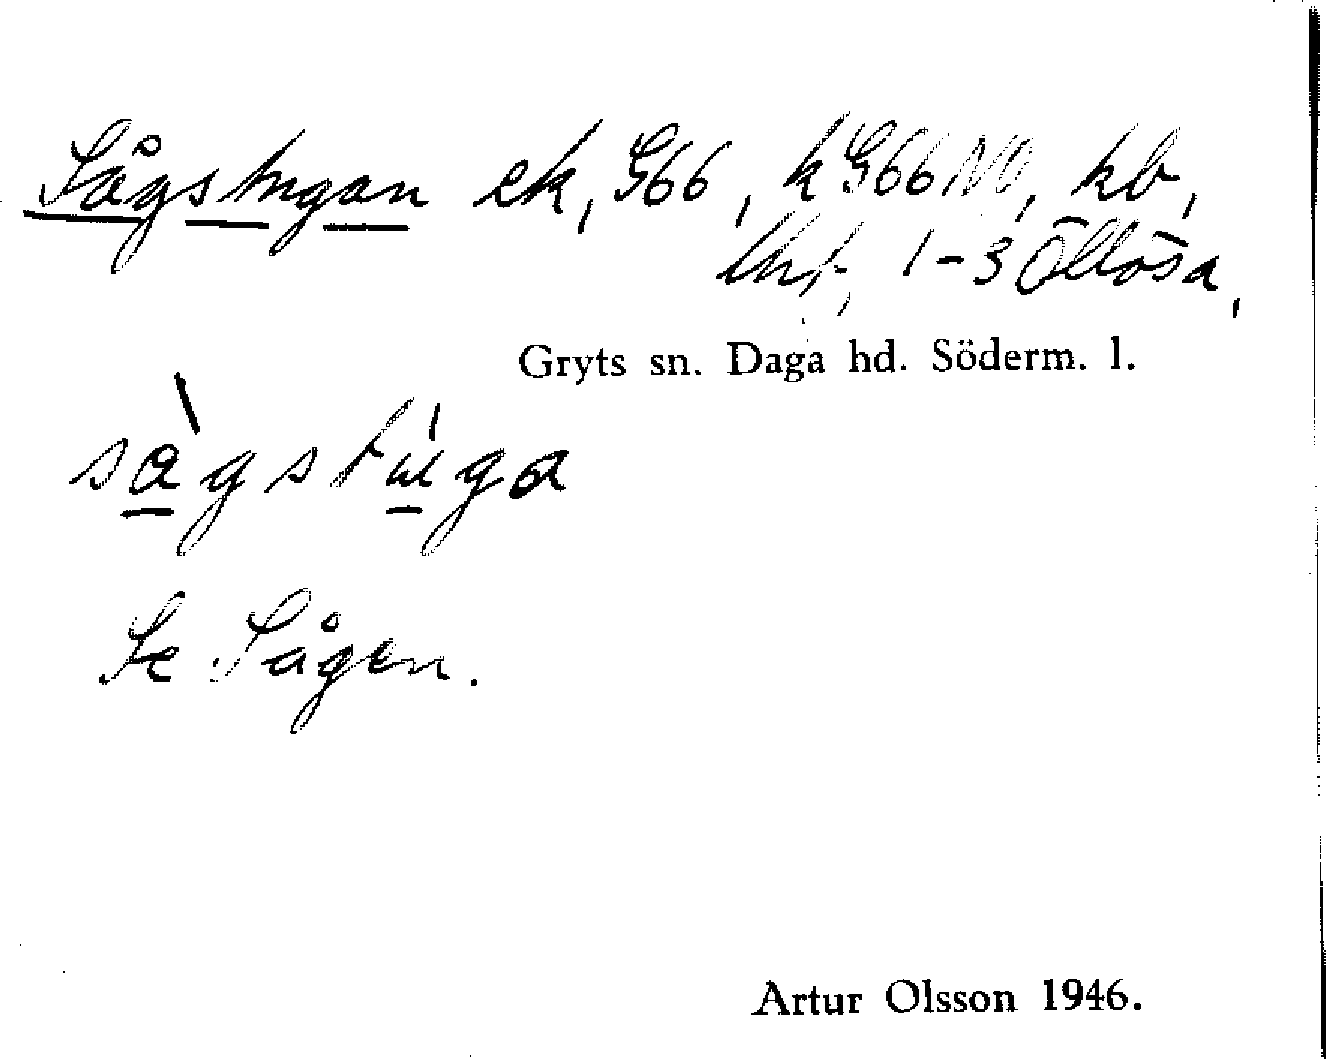 Sågstugan ek, G66, k G66 NO, kb,
lht, 1-3 Öllösa,
Gryts sn. Daga hd. Söderm. l.
sàgstúga
Se Sågen.
Artur Olsson 1946.